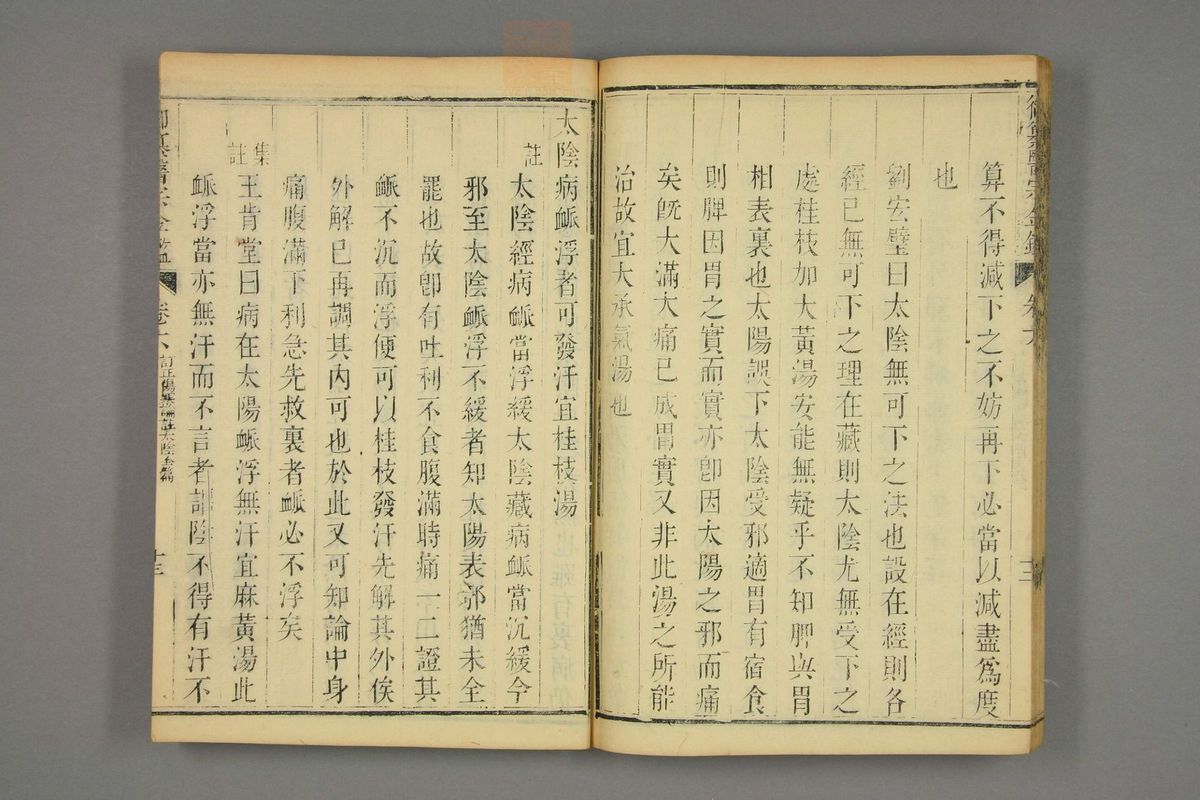 御纂醫宗金鑑 卷六 十二
算不得減下之不妨再下必當以減盡爲度
也
劉安璧曰太陰無可下之法也設在經則各
經已無可下之理在藏則太陰尤無受下之
處桂枝加大黃湯安能無疑乎不知脾與胃
相表裏也太陽誤下太陰受邪適胃有宿食
則脾因胃之實而實亦卽因太陽之邪而痛
矣旣大滿大痛已成胃實又非此湯之所能
治故宜大承氣湯也
太陰病脈浮者可發汗宜桂枝湯
註
太陰經病脈當浮緩太陰藏病脈當沉緩今
邪至太陰脈浮不緩者知太陽表邪猶未全
罷也故卽有吐利不食腹滿時痛一二證其
脈不沉而浮便可以桂枝發汗先解其外俟
外解已再調其內可也於此又可知論中身
痛腹滿下利急先救裏者脈必不浮矣
集註
王肯堂曰病在太陽脈浮無汗宜麻黃湯此
脈浮當亦無汗而不言者謂陰不得有汗不
御纂醫宗金鑑 卷六 訂正傷寒論註太陰全篇 十三